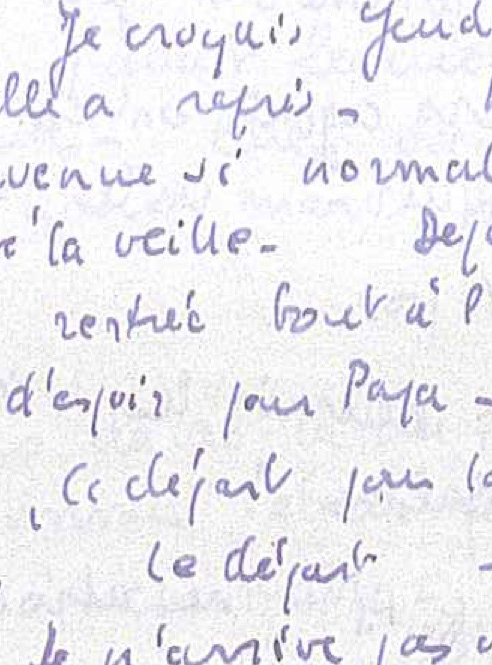 Je croyais Jeud
elle a repris.
venue si normal
la veille. Dep
rentrée tout à l
d'espoir pour Papa -
Ce départ pour la
le départ -
Je n'arrive pas